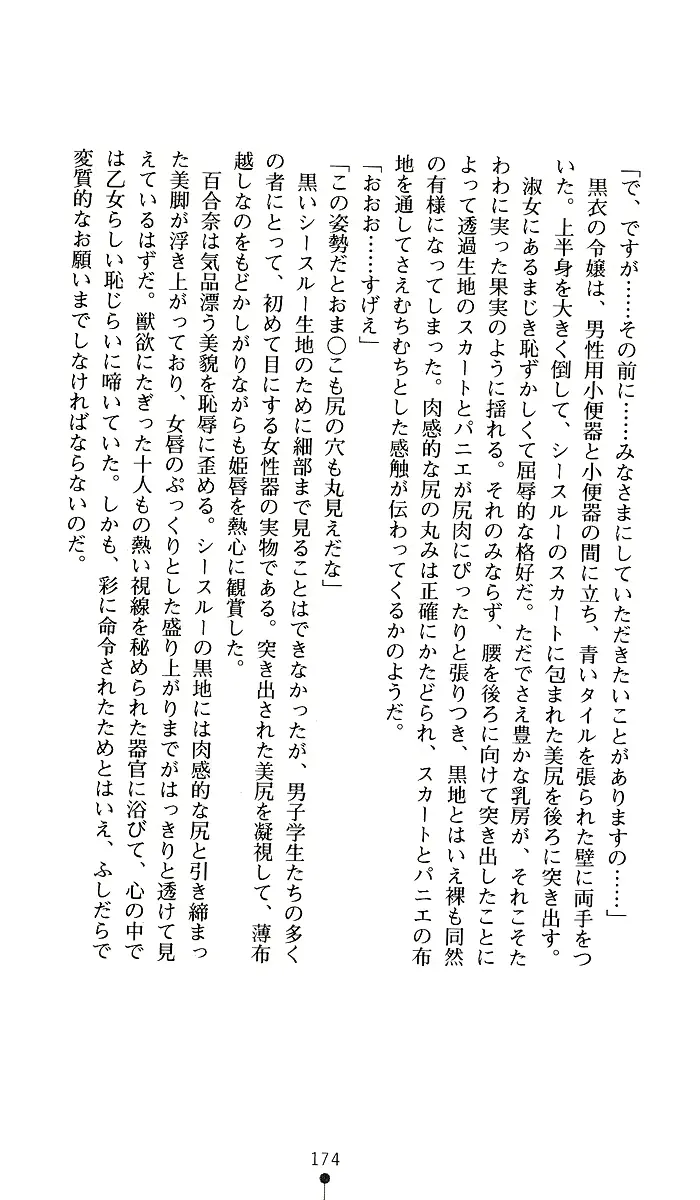 「で、ですが……その前に……みなさまにしていただきたいことがありますの……」
黒衣の令嬢は、男性用小便器と小便器の間に立ち、青いタイルを張られた壁に両手をつ
いた。上半身を大きく倒して、シースルーのスカートに包まれた美尻を後ろに突き出す。
淑女にあるまじき恥ずかしくて屈辱的な格好だ。ただでさえ豊かな乳房が、それこそた
わわに実った果実のように揺れる。それのみならず、腰を後ろに向けて突き出したことに
よって透過生地のスカートとパニエが尻肉にぴったりと張りつき、黒地とはいえ裸も同然
の有様になってしまった。肉感的な尻の丸みは正確にかたどられ、スカートとパニエの布
地を通してさえむちむちとした感触が伝わってくるかのようだ。
「おおお……すげえ」
「この姿勢だとおま〇こも尻の穴も丸見えだな」
黒いシースルー生地のために細部まで見ることはできなかったが、男子学生たちの多く
の者にとって、初めて目にする女性器の実物である。突き出された美尻を凝視して、薄布
越しなのをもどかしがりながらも姫唇を熱心に観賞した。
百合奈は気品漂う美貌を恥辱に歪める。シースルーの黒地には肉感的な尻と引き締まっ
た美脚が浮き上がっており、女唇のぷっくりとした盛り上がりまでがはっきりと透けて見
えているはずだ。獣欲にたぎった十人もの熱い視線を秘められた器官に浴びて、心の中で
は乙女らしい恥じらいに啼いていた。しかも、彩に命令されたためとはいえ、ふしだらで
変質的なお願いまでしなければならないのだ。
174